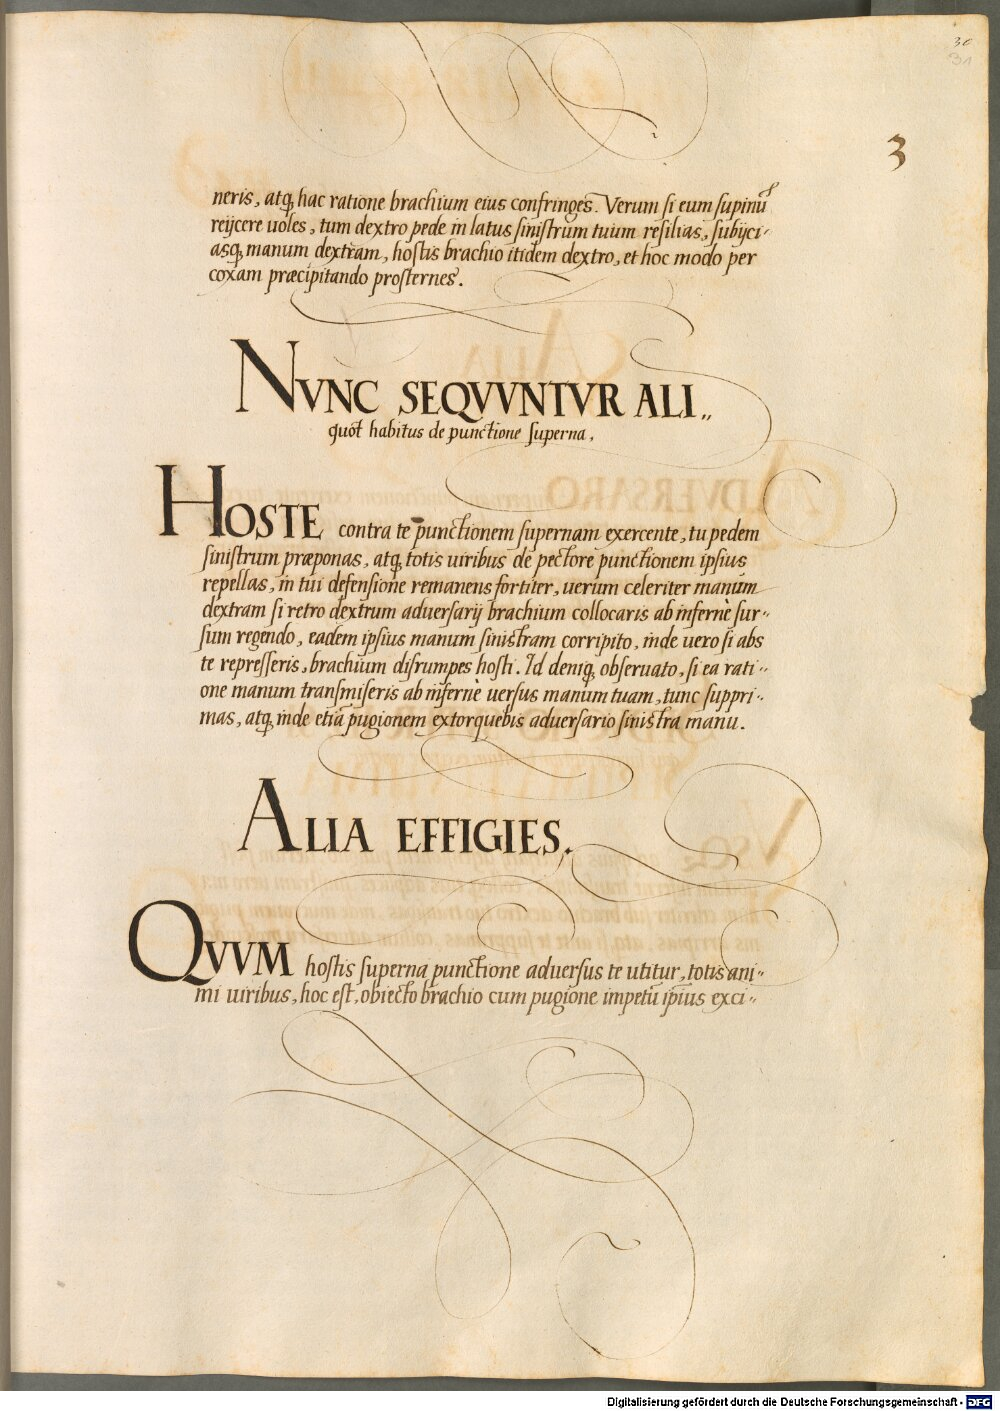 30
31
3
neris, atq; hac ratione brachium eius confringes. Verum si eum supinũ
reijcere uoles, tum dextro pede in latus sinistrum tuum resilias, subijci-
asq; manum dextram, hostis brachio itidem dextro, et hoc modo per
coxam præcipitando prosternes.
NVNC SEQVVNTVR ALI..
quot habitus de punctione superna,
HOSTE contra te punctionem supernam exercente, tu pedem
sinistrum præponas, atq; totis uiribus de pectore punctionem ipsius
repellas, in tui defensione remanens fortiter, uerum celeriter manum
dextram si retro dextrum aduersarij brachium collocaris ab infernè sur-
sum regendo, eadem ipsius manum sinistram corripito, inde uero si abs
te represseris, brachium disrumpes hosti. Id deniq; obseruato, si ea rati-
one manum transmiseris ab infernè uersus manum tuam, tunc suppri-
mas, atq; inde etiã pugionem extorquebis aduersario sinistra manu.
ALIA EFFIGIES.
QVVM hostis superna punctione aduersus te utitur, totis ani-
mi uiribus, hoc est, obiecto brachio cum pugione impetũ ipsius exci-
Digitalisierung gefördert durch die Deutsche Forschungsgemeinschaft - DFG